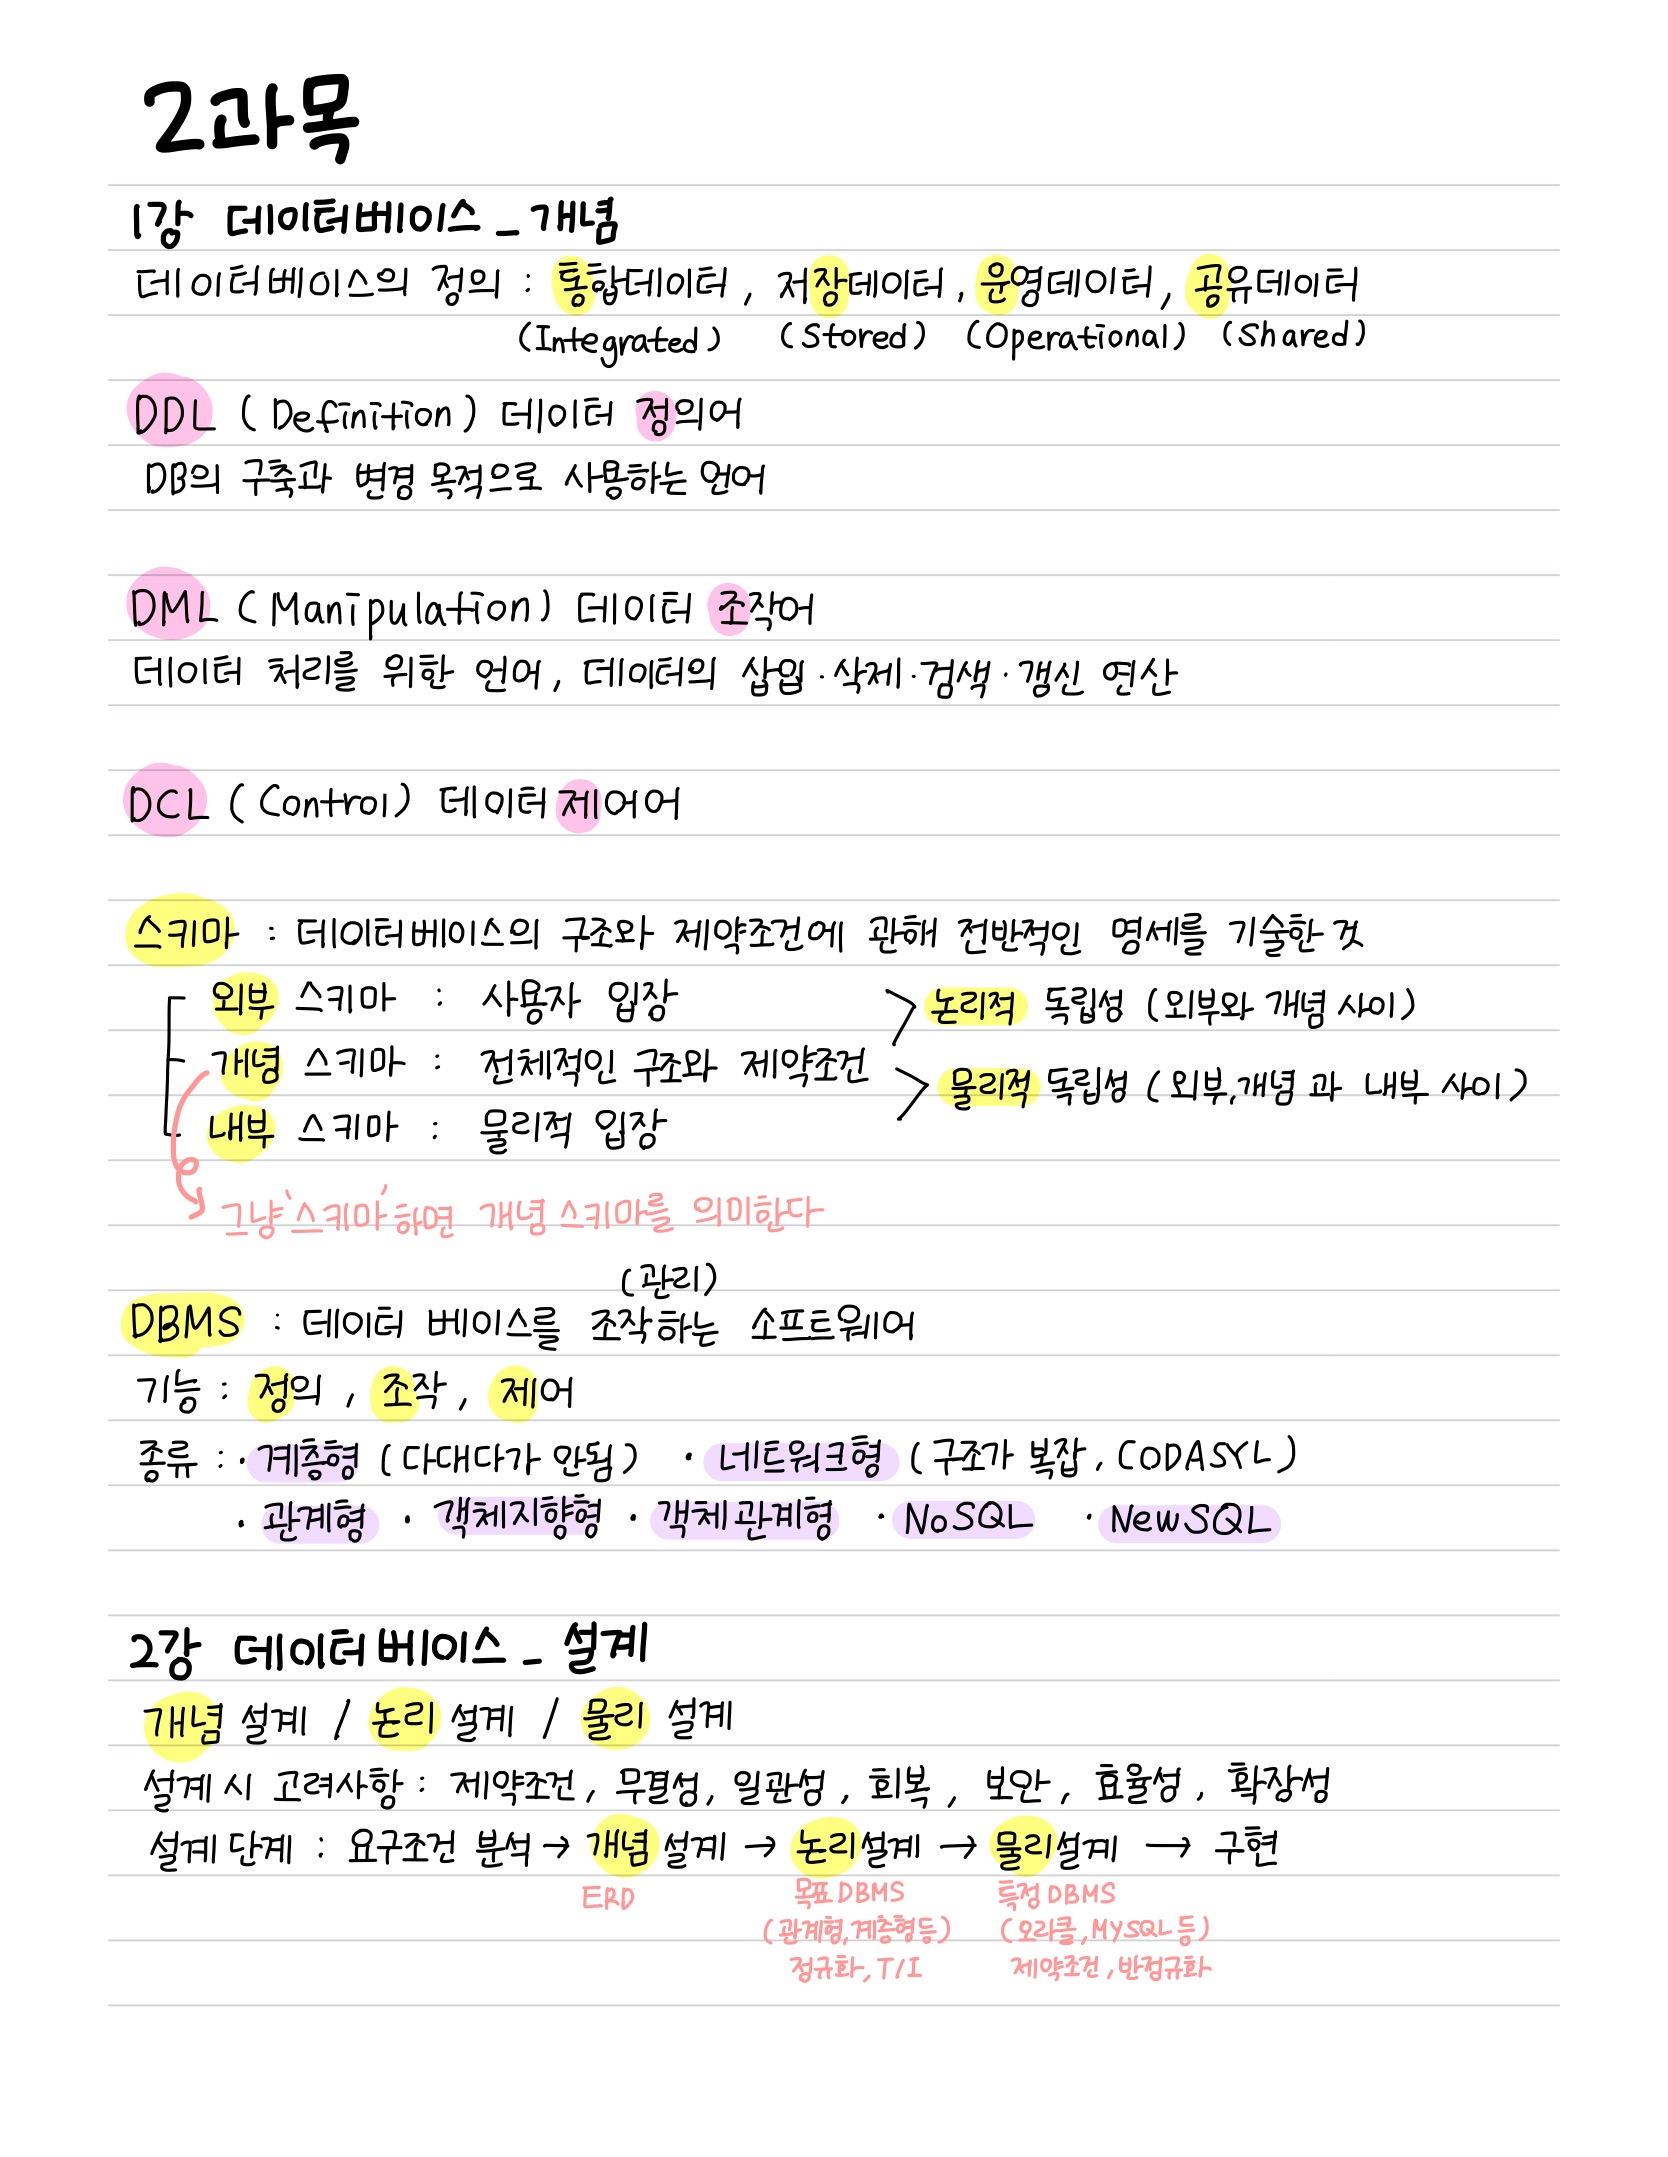 2과목
1강 데이터베이스_개념
데이터베이스의 정의 : 통합데이터, 저장데이터, 운영데이터, 공유데이터
(Integrated) (Stored) (Operational) (Shared)
DDL (Definition) 데이터 정의어
DB의 구축과 변경 목적으로 사용하는 언어
DML (Manipulation) 데이터 조작어
데이터 처리를 위한 언어, 데이터의 삽입·삭제·검색·갱신 연산
DCL (Control) 데이터 제어어
스키마 : 데이터베이스의 구조와 제약조건에 관해 전반적인 명세를 기술한 것
외부 스키마 : 사용자 입장
논리적 독립성 (외부와 개념 사이)
개념 스키마 : 전체적인 구조와 제약조건
물리적 독립성 (외부,개념 과 내부 사이)
내부 스키마 : 물리적 입장
그냥 '스키마' 하면 개념 스키마를 의미한다
(관리)
DBMS : 데이터 베이스를 조작하는 소프트웨어
기능 : 정의, 조작, 제어
종류 : · 계층형 (다대다가 안됨) · 네트워크형 (구조가 복잡, CODASYL)
· 관계형 · 객체지향형 · 객체관계형 · NoSQL · NewSQL
2강 데이터베이스_설계
개념 설계 / 논리 설계 / 물리 설계
설계 시 고려사항 : 제약조건, 무결성, 일관성, 회복, 보안, 효율성, 확장성
설계 단계 : 요구조건 분석 → 개념 설계 → 논리설계 → 물리설계 → 구현
ERD 목표 DBMS 특정 DBMS
(관계형,계층형등) (오라클,MYSQL등)
정규화, T/I 제약조건, 반정규화